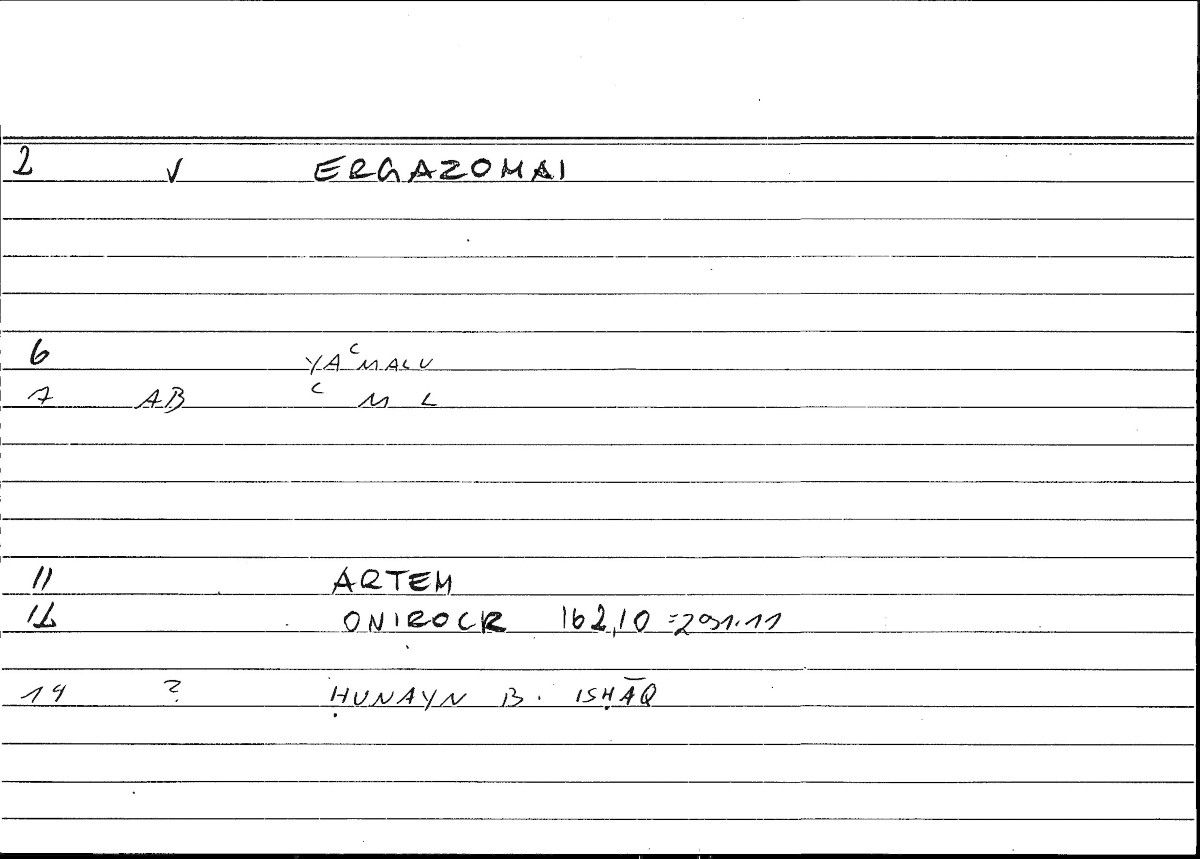 2 V ERGAZOMAI
6 YAʿMALU
7 AB ʿ M L
11 ARTEM
12 ONIROCR 162,10 =291.11
14 ? ḤUNAYN B. ISḤĀQ